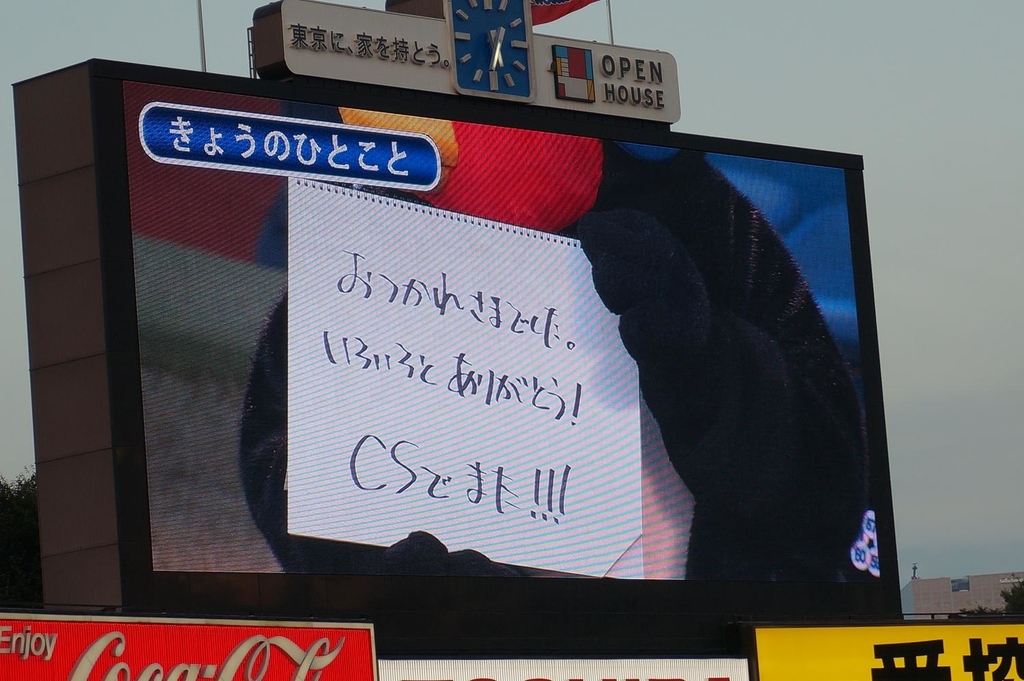 東京に、家を持とう。
OPEN
HOUSE
きょうのひとこと
おつかれさまでした。
いろいろとありがとう!
CSでまた!!!
Enjoy
Coca-Co
TOSHIBA